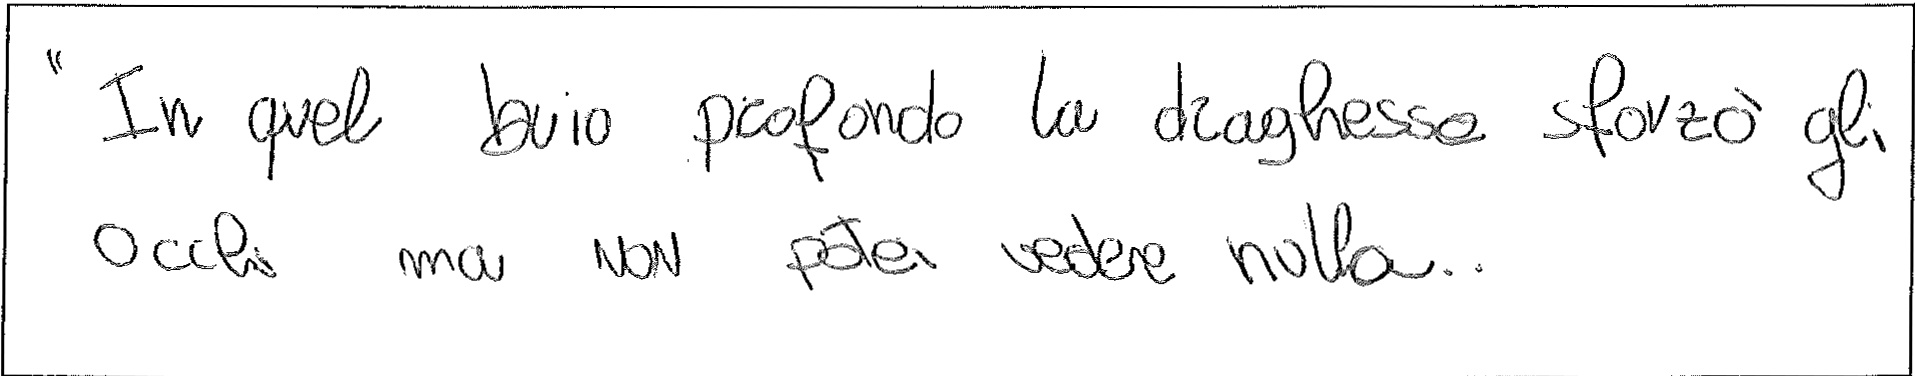 "In quel buio profondo la draghessa sforzò gli
occhi ma non potei vedere nulla..